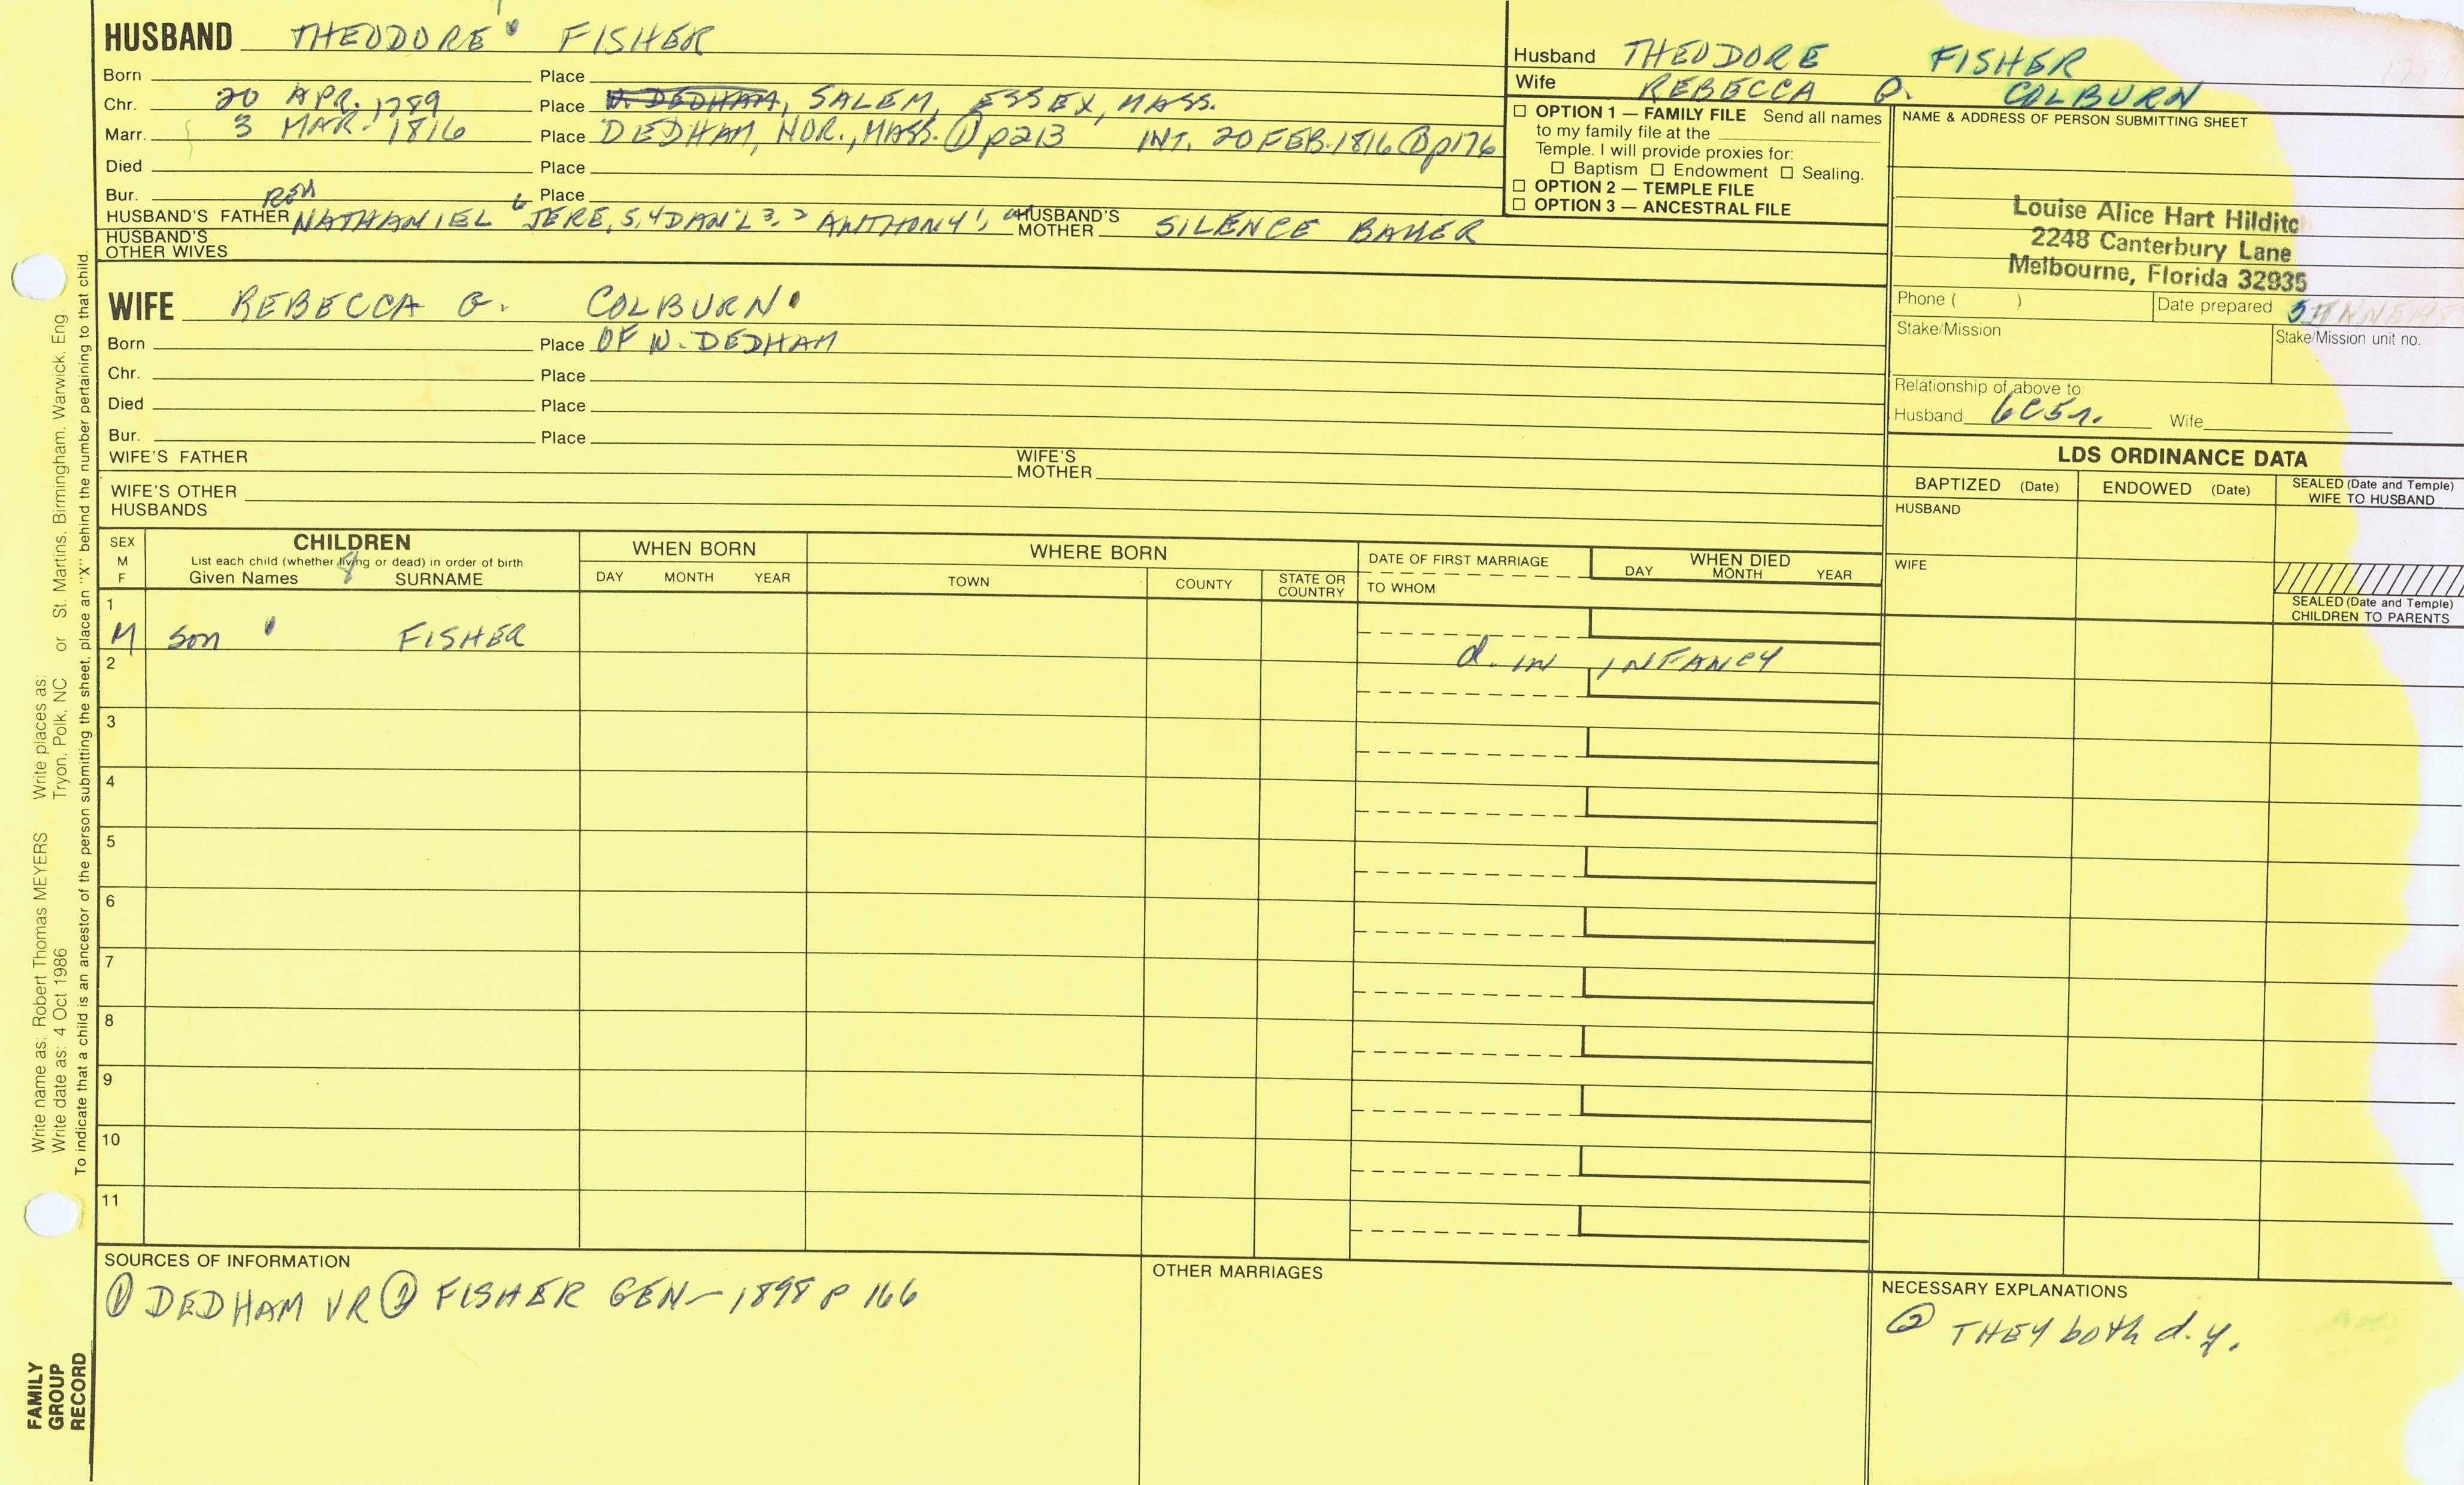 HUSBAND THEODORE FISHER
Born Place
Chr. 20 APR. 1789 Place W. DEDHAM, SALEM, ESSEX, MASS.
Marr. 3 MAR. 1816 Place DEDHAM, NOR., MASS. ① p213 INT. 20 FEB. 1816 ① p176
Died Place
Bur. Place
HUSBAND'S FATHER NATHANIEL 6 JERE, 5, 4 DAN'L 3, 2 ANTHONY 1, HUSBAND'S MOTHER SILENCE BAKER
HUSBAND'S OTHER WIVES
WIFE REBECCA G. COLBURN
Born Place OF W. DEDHAM
Chr. Place
Died Place
Bur. Place
WIFE'S FATHER WIFE'S MOTHER
WIFE'S OTHER HUSBANDS
Husband THEODORE FISHER
Wife REBECCA G. COLBURN
☐ OPTION 1 — FAMILY FILE Send all names
to my family file at the
Temple. I will provide proxies for:
☐ Baptism ☐ Endowment ☐ Sealing.
☐ OPTION 2 — TEMPLE FILE
☐ OPTION 3 — ANCESTRAL FILE
NAME & ADDRESS OF PERSON SUBMITTING SHEET
Louise Alice Hart Hilditc
2248 Canterbury Lane
Melbourne, Florida 32935
Phone ( ) Date prepared
Stake/Mission Stake/Mission unit no.
Relationship of above to:
Husband 6C5r. Wife
LDS ORDINANCE DATA
BAPTIZED (Date) ENDOWED (Date) SEALED (Date and Temple) WIFE TO HUSBAND
HUSBAND
WIFE
SEALED (Date and Temple)
CHILDREN TO PARENTS
SEX M F
CHILDREN
List each child (whether living or dead) in order of birth
Given Names SURNAME
WHEN BORN
DAY MONTH YEAR
WHERE BORN
TOWN COUNTY STATE OR COUNTRY
DATE OF FIRST MARRIAGE
TO WHOM
WHEN DIED
DAY MONTH YEAR
1
M Son FISHER
2 d. IN INFANCY
3
4
5
6
7
8
9
10
11
SOURCES OF INFORMATION
① DEDHAM VR ② FISHER GEN — 1898 P 166
OTHER MARRIAGES
NECESSARY EXPLANATIONS
② THEY both d. y.
Write name as: Robert Thomas MEYERS Write places as:
Write date as: 4 Oct 1986 Tryon, Polk, NC or St. Martins, Birmingham, Warwick, Eng.
To indicate that a child is an ancestor of the person submitting the sheet, place an "X" behind the number pertaining to that child.
FAMILY
GROUP
RECORD